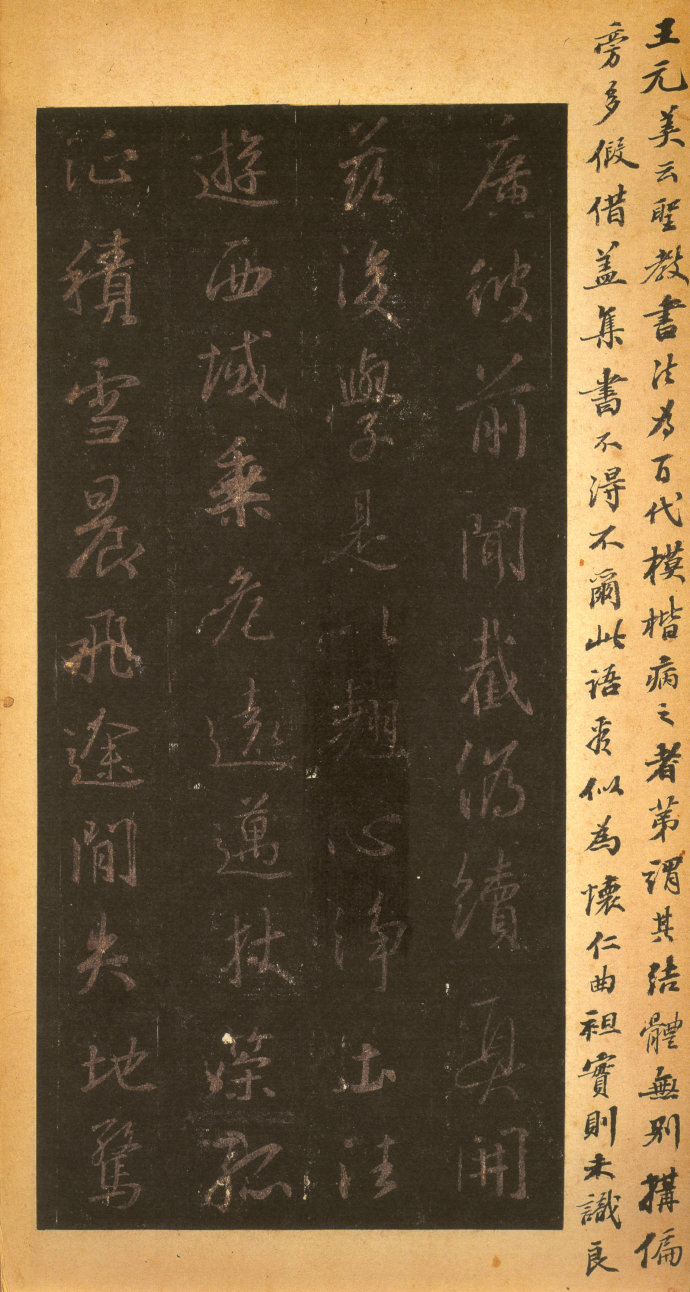 王元美云聖教書法為百代模楷病之者第謂其結體無別搆偏
旁多假借蓋集書不得不爾此語看似為懷仁曲袒實則未識良
廣彼前聞截偽續真開
茲後學是以翹心淨土法
遊西域乘危遠邁杖策孤
征積雪晨飛途間失地驚